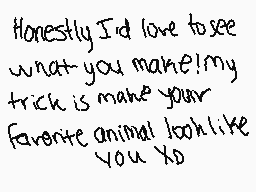 Honestly I'd love to see
what you make! my
trick is make your
favorite animal look like
YOU XD